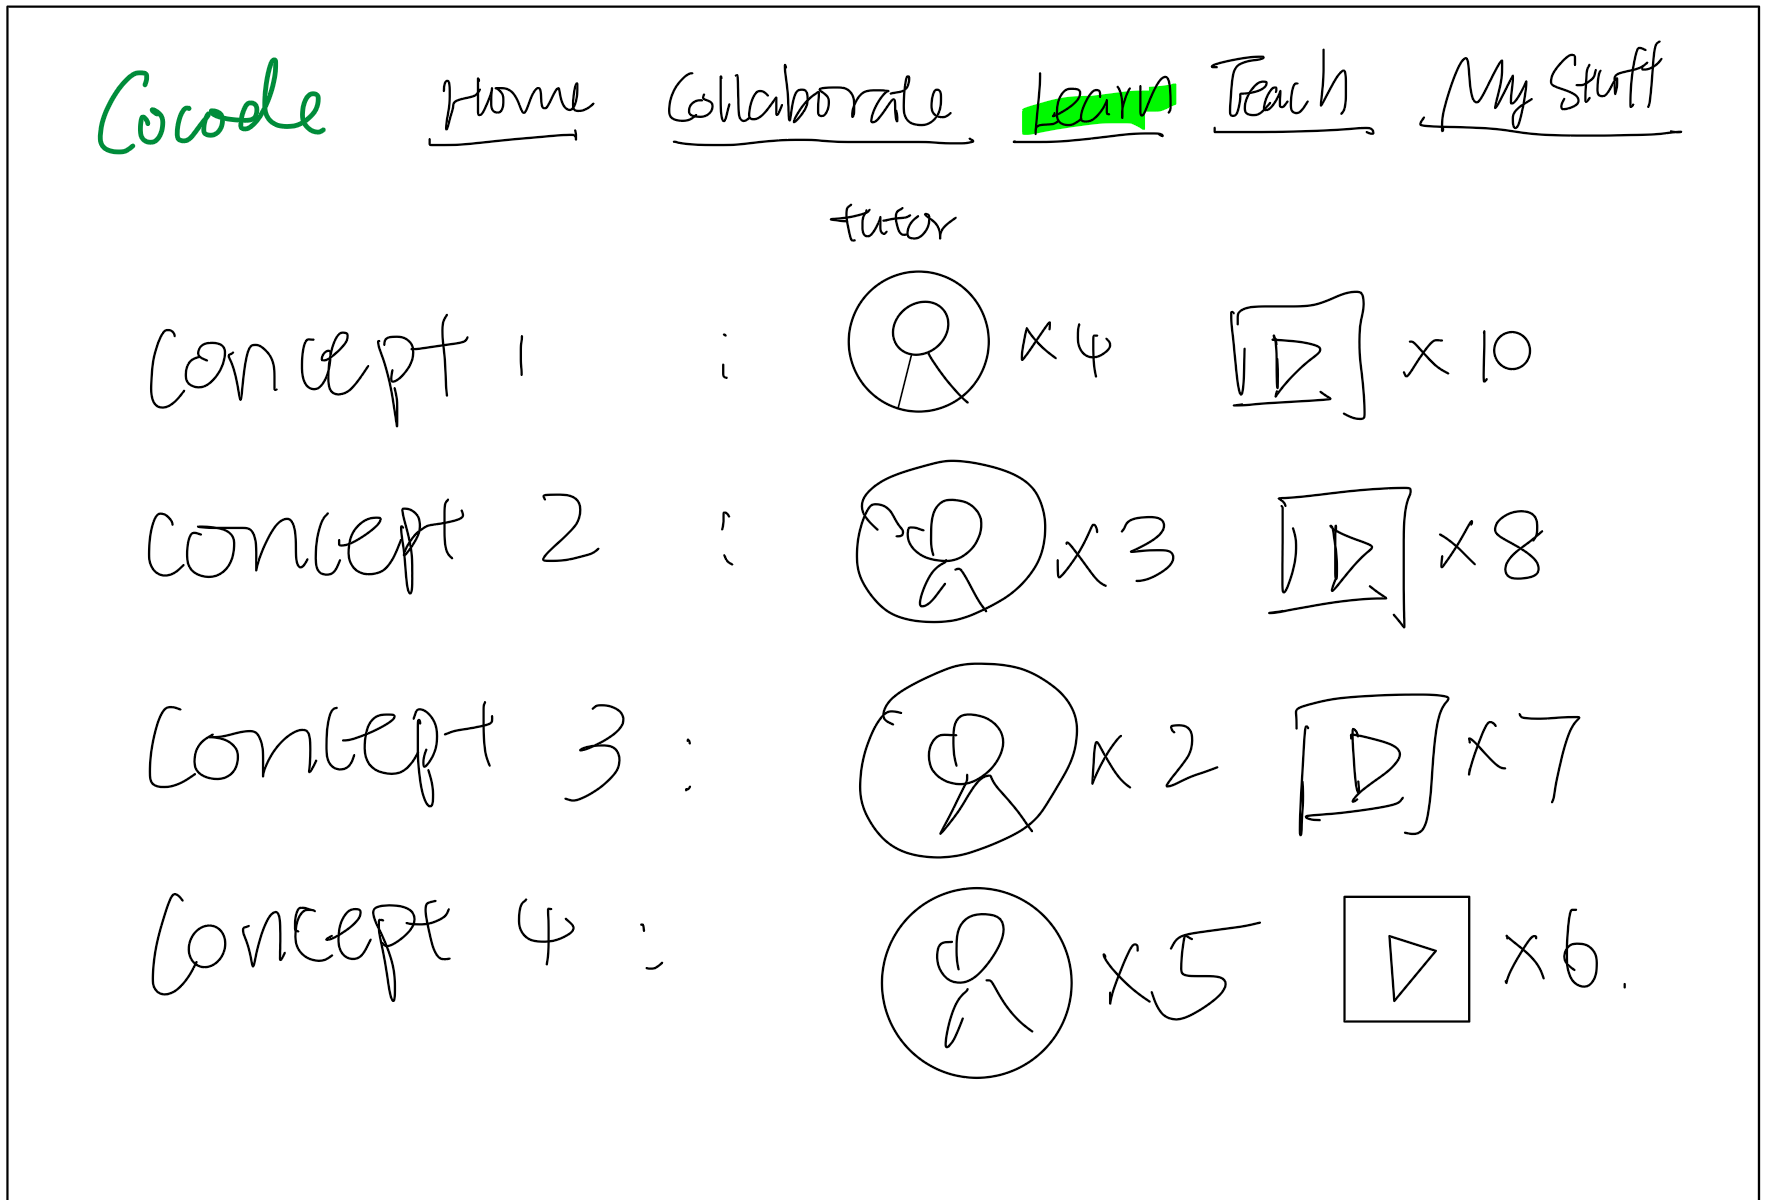 Cocode Home Collaborate Learn Teach My Stuff
tutor
Concept 1 : x4 x10
Concept 2 : x3 x8
Concept 3 : x2 x7
Concept 4 : x5 x6.